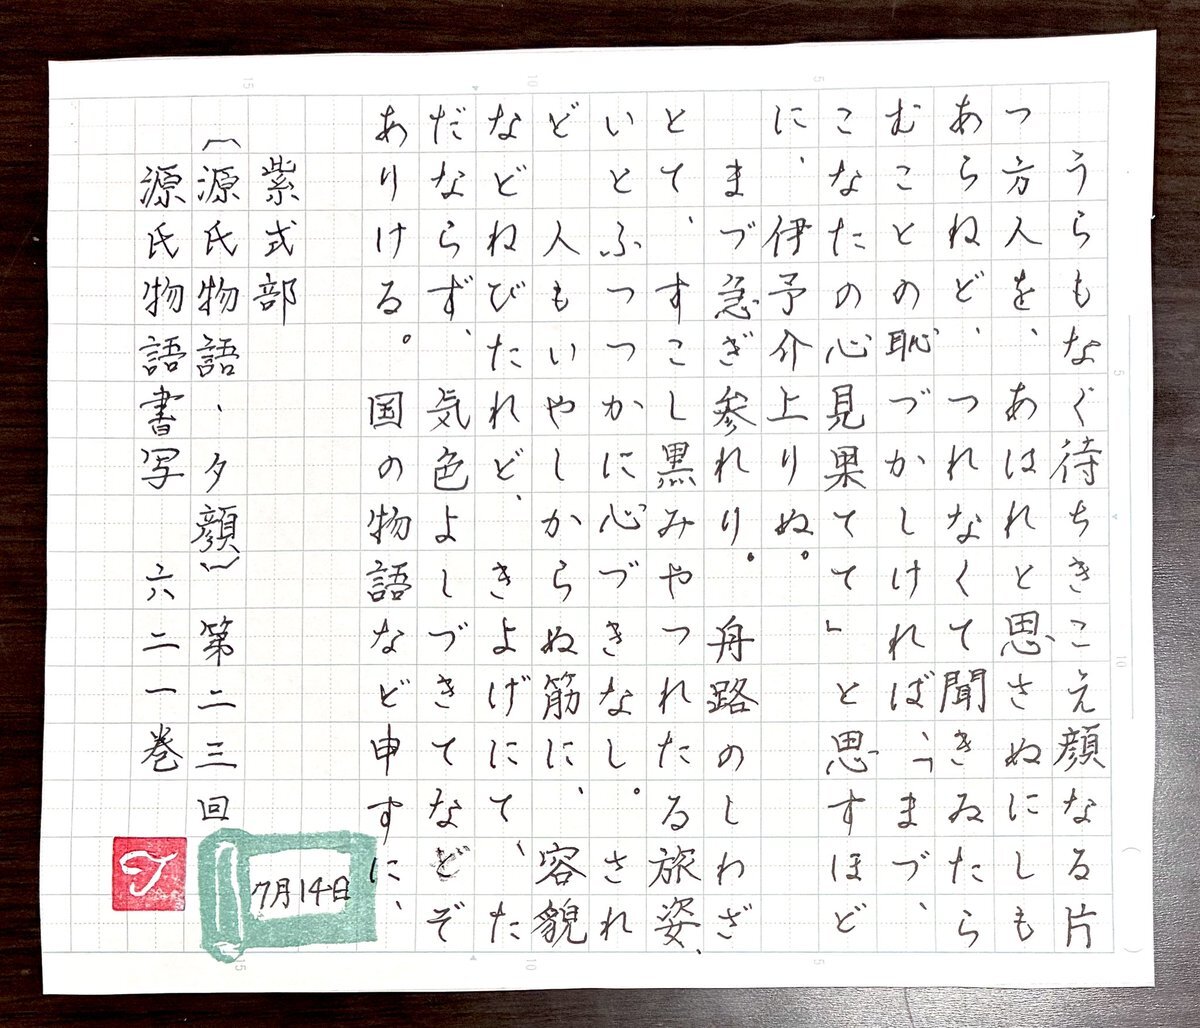 うらもなく待ちきこえ顔なる片
つ方人を、あはれと思さぬにしも
あらねど、つれなくて聞きゐたら
むことの恥づかしければ、「まづ、
こなたの心見果てて」と思すほど
に、伊予介上りぬ。
まづ急ぎ参れり。舟路のしわざ
とて、すこし黒みやつれたる旅姿、
いとふつつかに心づきなし。され
ど人もいやしからぬ筋に、容貌
などねびたれど、きよげにて、た
だならず、気色よしづきてなどぞ
ありける。国の物語など申すに、
紫式部
(源氏物語・夕顔)第二三回
源氏物語書写 六二一巻
7月14日